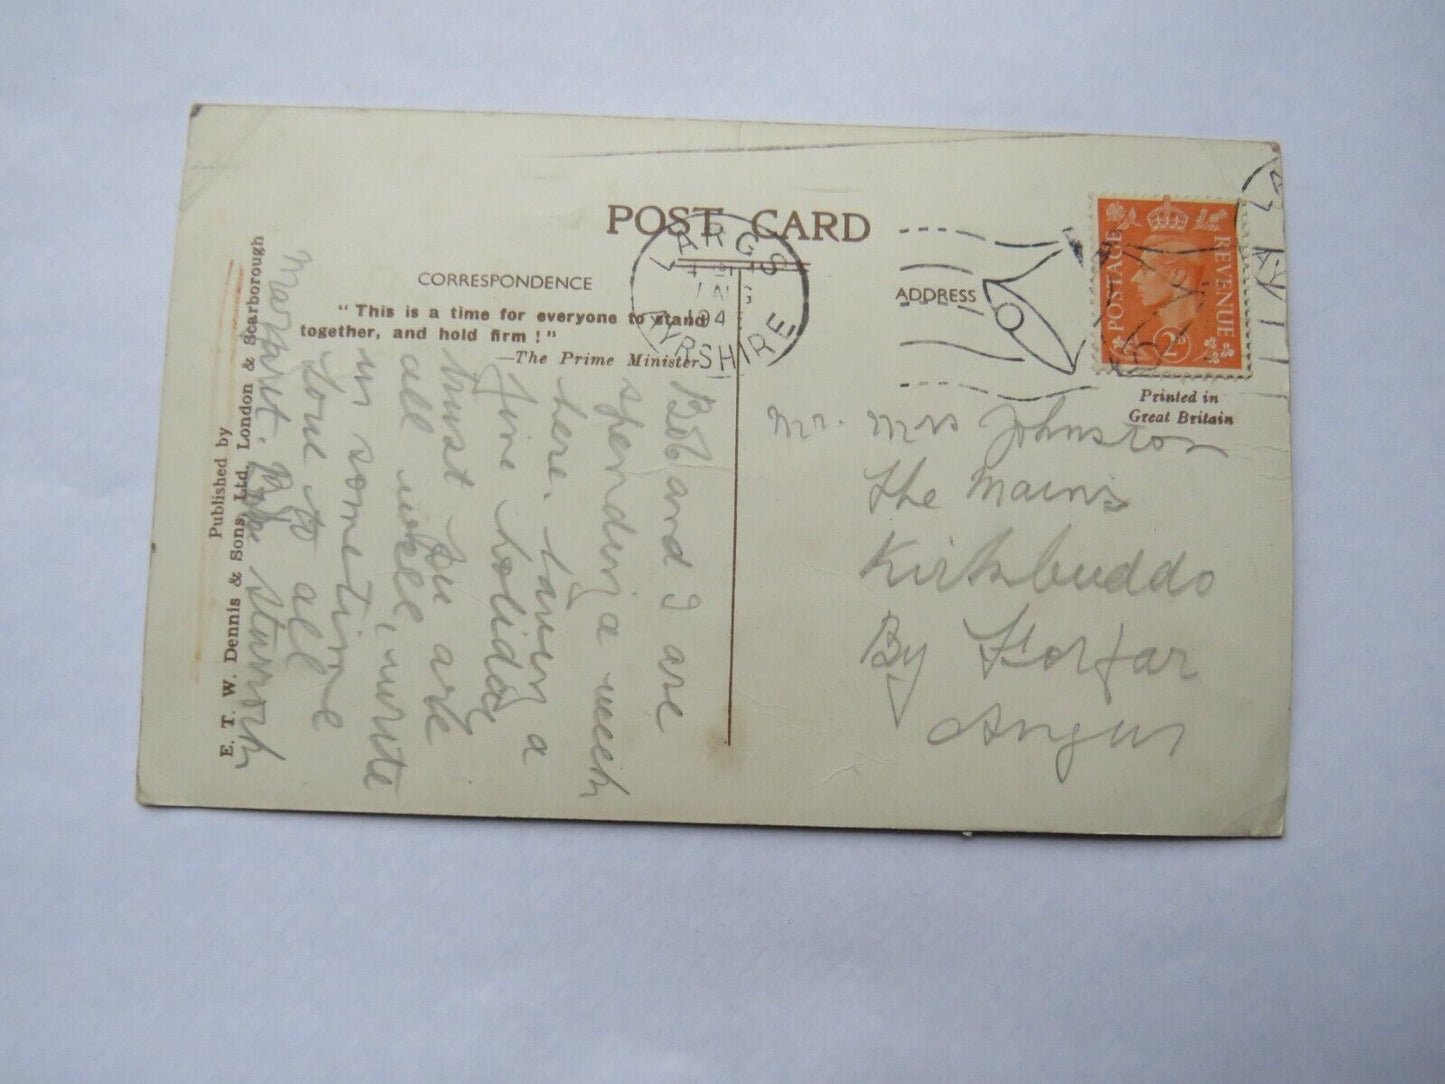 POST CARD
CORRESPONDENCE
"This is a time for everyone to stand
together, and hold firm!"
—The Prime Minister
ADDRESS
LARGS
194
AYRSHIRE
POSTAGE
REVENUE
2D
Printed in
Great Britain
Mr. Mrs Johnston
The Mains
Kirkbuddo
By Forfar
Angus
Bob and I are
spending a week
here. having a
fine holiday
trust you are
all well, write
us sometime
Love to all
Margaret.
Published by
E. T. W. Dennis & Sons, Ltd. London & Scarborough